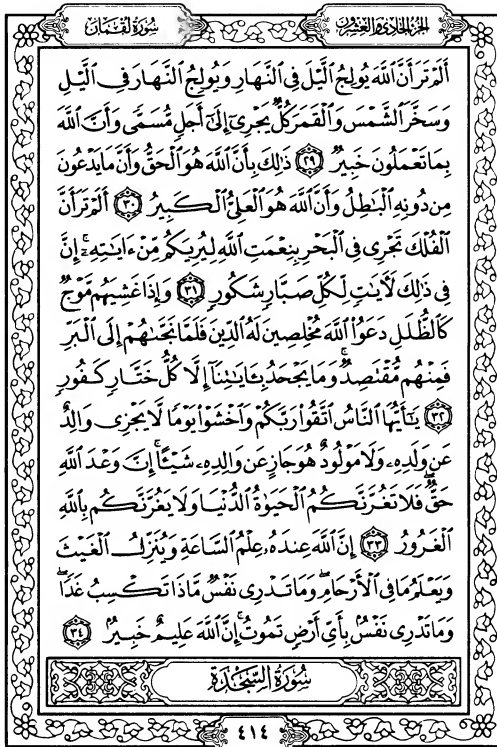 سُورَةُ لُقْمَان الجُزْءُ الحَادِي وَالعِشْرُونَ
أَلَمْ تَرَ أَنَّ ٱللَّهَ يُولِجُ ٱلَّيْلَ فِى ٱلنَّهَارِ وَيُولِجُ ٱلنَّهَارَ فِى ٱلَّيْلِ
وَسَخَّرَ ٱلشَّمْسَ وَٱلْقَمَرَ كُلٌّ يَجْرِىٓ إِلَىٰٓ أَجَلٍ مُّسَمًّى وَأَنَّ ٱللَّهَ
بِمَا تَعْمَلُونَ خَبِيرٌ ٢٩ ذَٰلِكَ بِأَنَّ ٱللَّهَ هُوَ ٱلْحَقُّ وَأَنَّ مَا يَدْعُونَ
مِن دُونِهِ ٱلْبَٰطِلُ وَأَنَّ ٱللَّهَ هُوَ ٱلْعَلِىُّ ٱلْكَبِيرُ ٣٠ أَلَمْ تَرَ أَنَّ
ٱلْفُلْكَ تَجْرِى فِى ٱلْبَحْرِ بِنِعْمَتِ ٱللَّهِ لِيُرِيَكُم مِّنْ ءَايَٰتِهِۦٓ ۚ إِنَّ
فِى ذَٰلِكَ لَءَايَٰتٍ لِّكُلِّ صَبَّارٍ شَكُورٍ ٣١ وَإِذَا غَشِيَهُم مَّوْجٌ
كَٱلظُّلَلِ دَعَوُا۟ ٱللَّهَ مُخْلِصِينَ لَهُ ٱلدِّينَ فَلَمَّا نَجَّىٰهُمْ إِلَى ٱلْبَرِّ
فَمِنْهُم مُّقْتَصِدٌ ۚ وَمَا يَجْحَدُ بِـَٔايَٰتِنَآ إِلَّا كُلُّ خَتَّارٍ كَفُورٍ
٣٢ يَٰٓأَيُّهَا ٱلنَّاسُ ٱتَّقُوا۟ رَبَّكُمْ وَٱخْشَوْا۟ يَوْمًا لَّا يَجْزِى وَالِدٌ
عَن وَلَدِهِۦ وَلَا مَوْلُودٌ هُوَ جَازٍ عَن وَالِدِهِۦ شَيْـًٔا ۚ إِنَّ وَعْدَ ٱللَّهِ
حَقٌّ ۖ فَلَا تَغُرَّنَّكُمُ ٱلْحَيَوٰةُ ٱلدُّنْيَا وَلَا يَغُرَّنَّكُم بِٱللَّهِ
ٱلْغَرُورُ ٣٣ إِنَّ ٱللَّهَ عِندَهُۥ عِلْمُ ٱلسَّاعَةِ وَيُنَزِّلُ ٱلْغَيْثَ
وَيَعْلَمُ مَا فِى ٱلْأَرْحَامِ ۖ وَمَا تَدْرِى نَفْسٌ مَّاذَا تَكْسِبُ غَدًا ۖ
وَمَا تَدْرِى نَفْسٌۢ بِأَىِّ أَرْضٍ تَمُوتُ ۚ إِنَّ ٱللَّهَ عَلِيمٌ خَبِيرٌۢ ٣٤
سُورَةُ السَّجْدَةِ
٤١٤